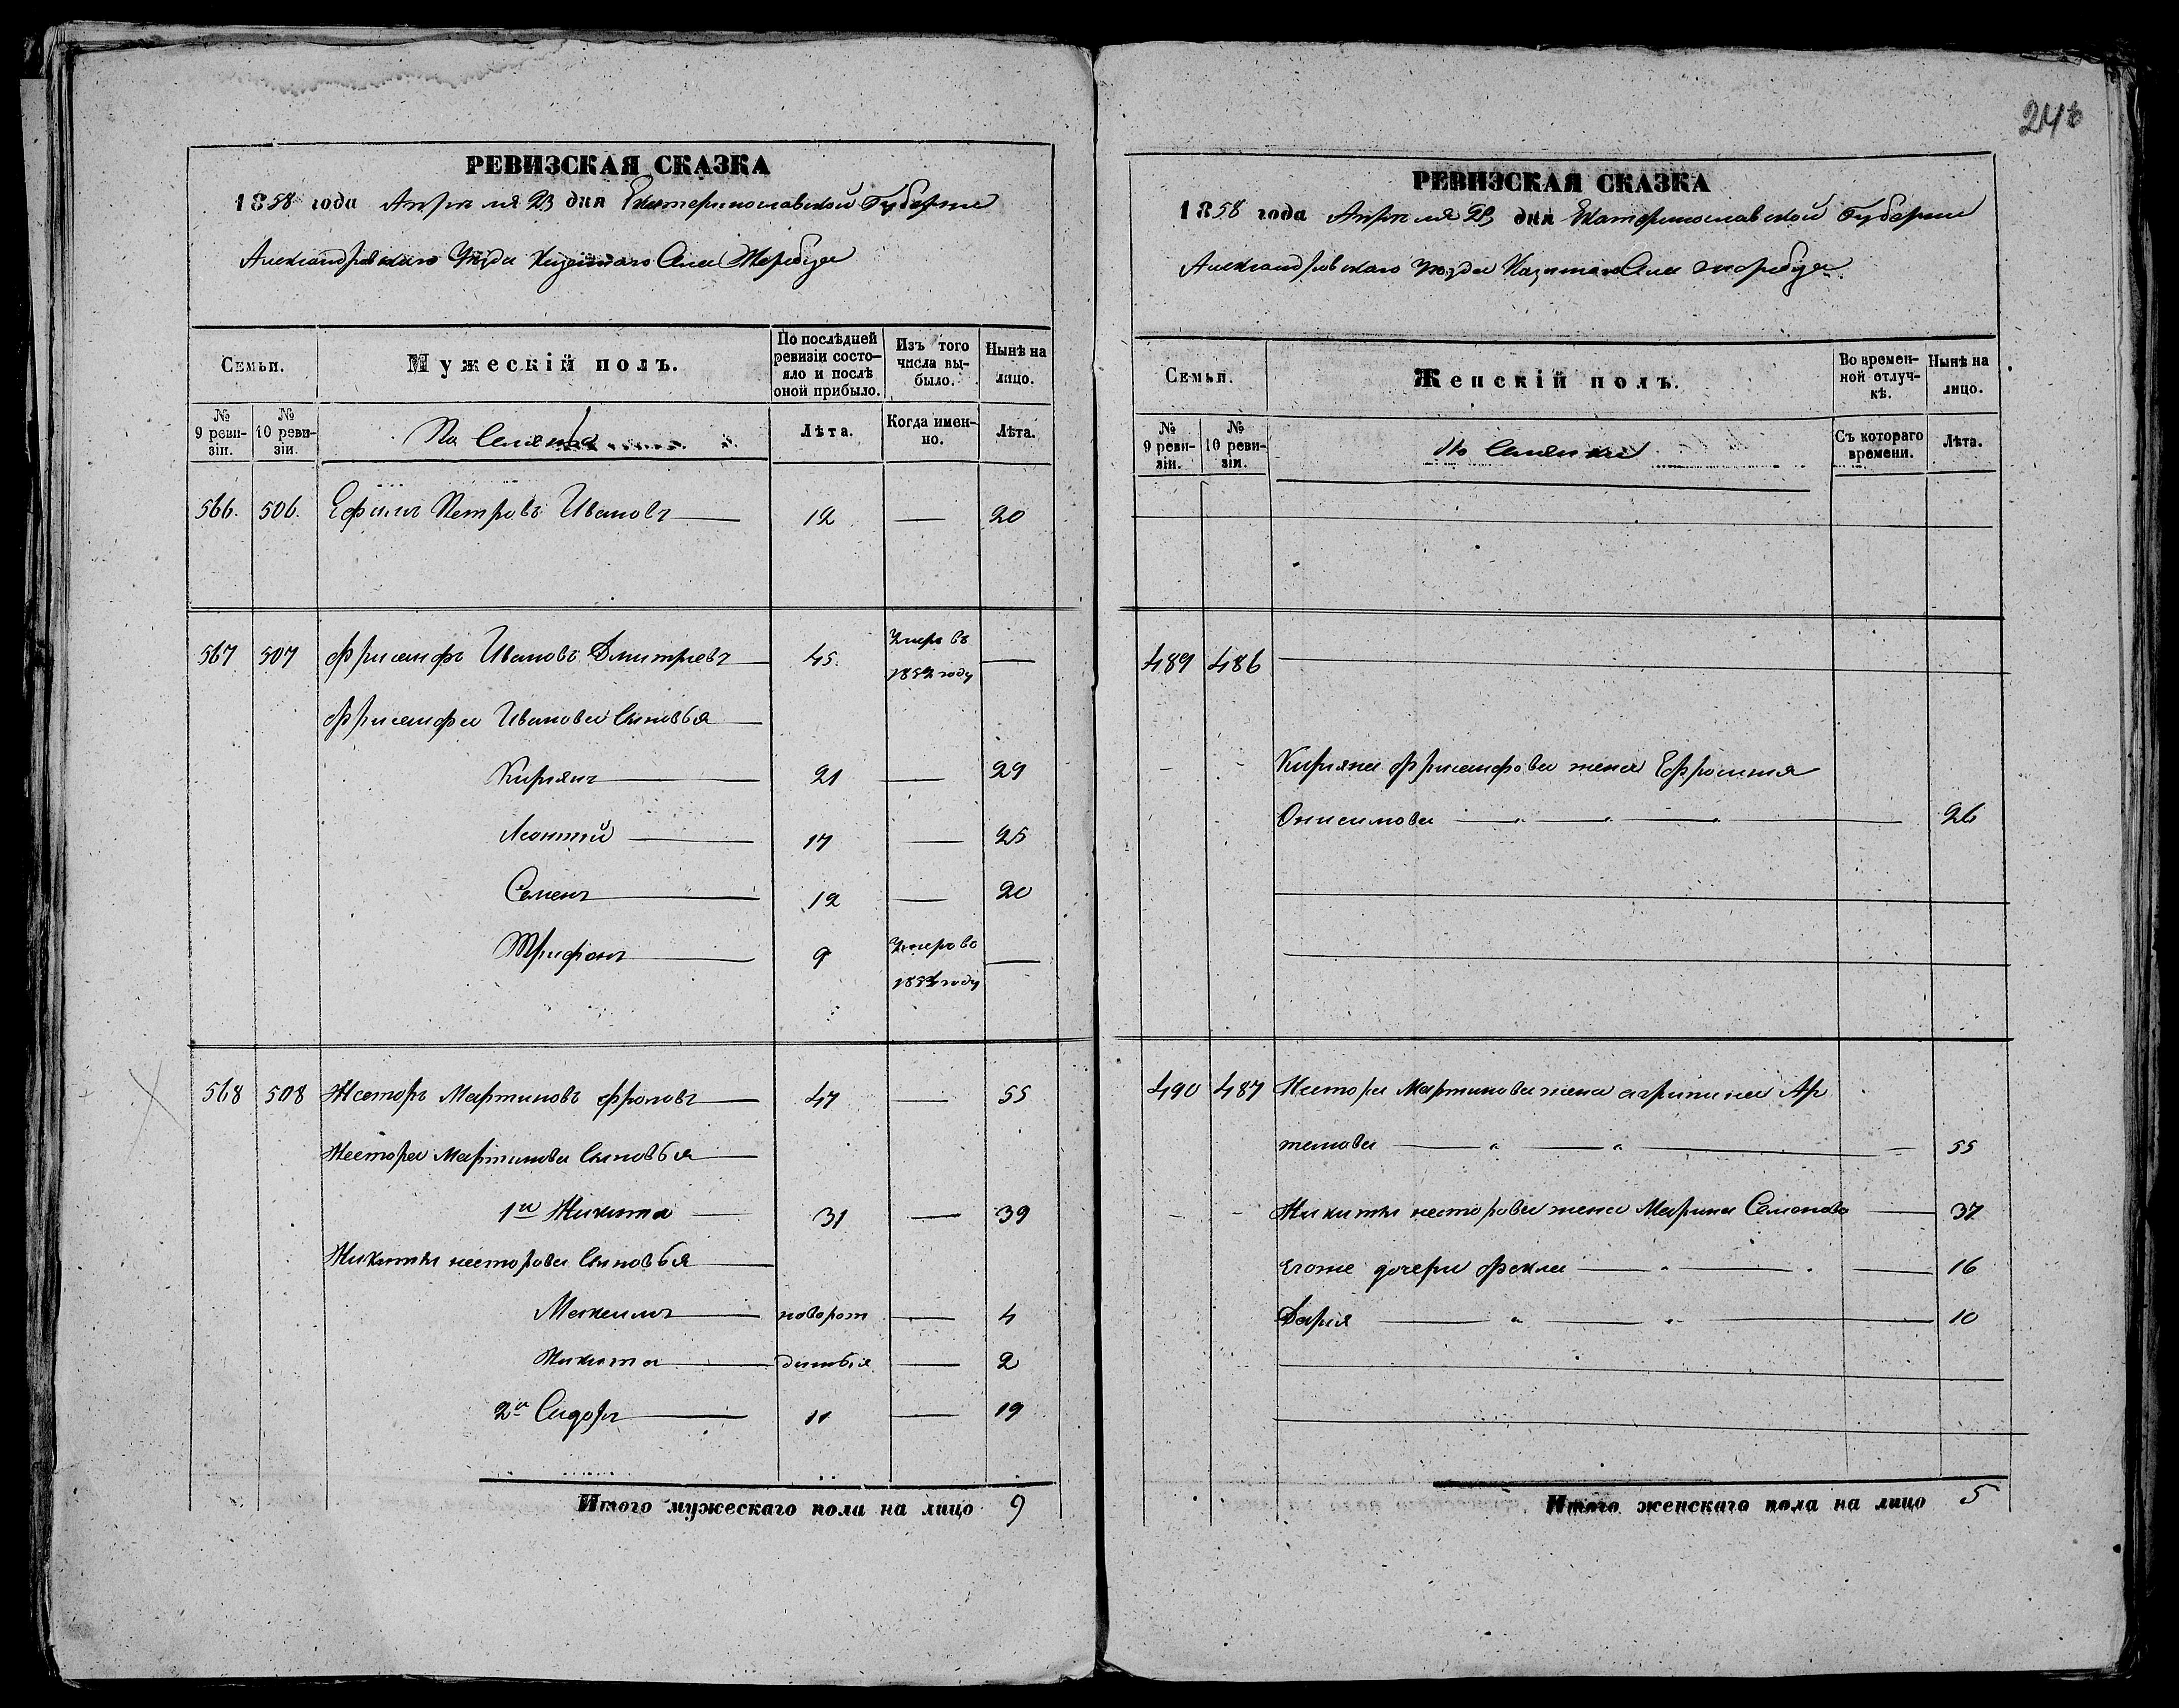 246
РЕВИЗСКАЯ СКАЗКА
1858 года Апрѣля 23 дня Екатеринославской Губерніи
Александровскаго Уѣзда Казеннаго Села Жеребца
Семьи. Мужескій полъ. По послѣдней ревизіи состо- яло и послѣ оной прибыло. Изъ того числа вы- было. Нынѣ на лицо.
№ 9 реви- зіи. № 10 реви- зіи. Лѣта. Когда имен- но. Лѣта.
566. 506. Ефимъ Петровъ Ивановъ 12 — 20
567 507 Фрисанфъ Ивановъ Дмитріевъ 45. Умеръ въ
185 году —
Фрисанфа Иванова Сыновья
Кирьянъ 21 — 29
Леонтій 17 — 25
Семенъ 12 — 20
Трифонъ 9 Умеръ во
185 году —
568 508 Несторъ Мартиновъ Фроловъ 47 — 55
Нестора Мартинова Сыновья
1й Никита 31 — 39
Никиты несторова Сыновья
Максимъ новорож 4
Никита денныя 2
2й Сидоръ 11 — 19
Итого мужескаго пола на лицо 9
РЕВИЗСКАЯ СКАЗКА
1858 года Апрѣля 23 дня Екатеринославской Губерніи
Александровскаго Уѣзда Казеннаго Села Жеребца
Семьи. Женскій полъ. Во времен- ной отлуч- кѣ. Нынѣ на лицо.
№ 9 реви- зіи. № 10 реви- зіи. Съ котораго времени. Лѣта.
489 486
Кирьяна Фрисанфова жена Ефросинія
Онисимова 26
490 487 Нестора Мартинова жена агрипина Ар
темова 55
Никиты несторова жена Марина Семенова 37
егоже дочери Фекла 16
Дарія 10
Итого женскаго пола на лицо 5